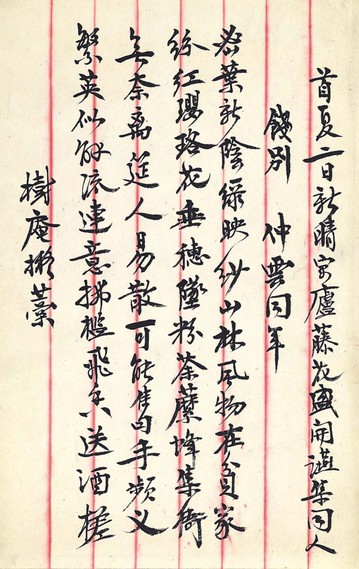 首夏二日新晴寓廬藤花盛開讌集同人
餞別 仲雲同年
密葉新陰綠映紗山林風物在貧家
紛紅瓔珞花垂穗墜粉荼蘼蜂集衙
無奈離筵人易散可能隽句手頻叉
繁英似解流連意檻飛送酒槎
樹庵擬藁